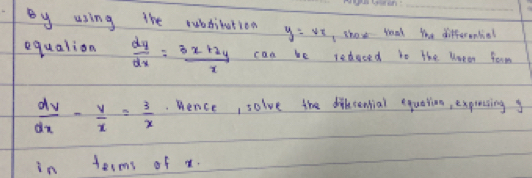 By using the subsitution y = vx, show that the differential
equation dy/dx = 3x+2y/x can be reduced to the linear form
dv/dx - v/x = 3/x . Hence, solve the differential equation, expressing y
in terms of x.